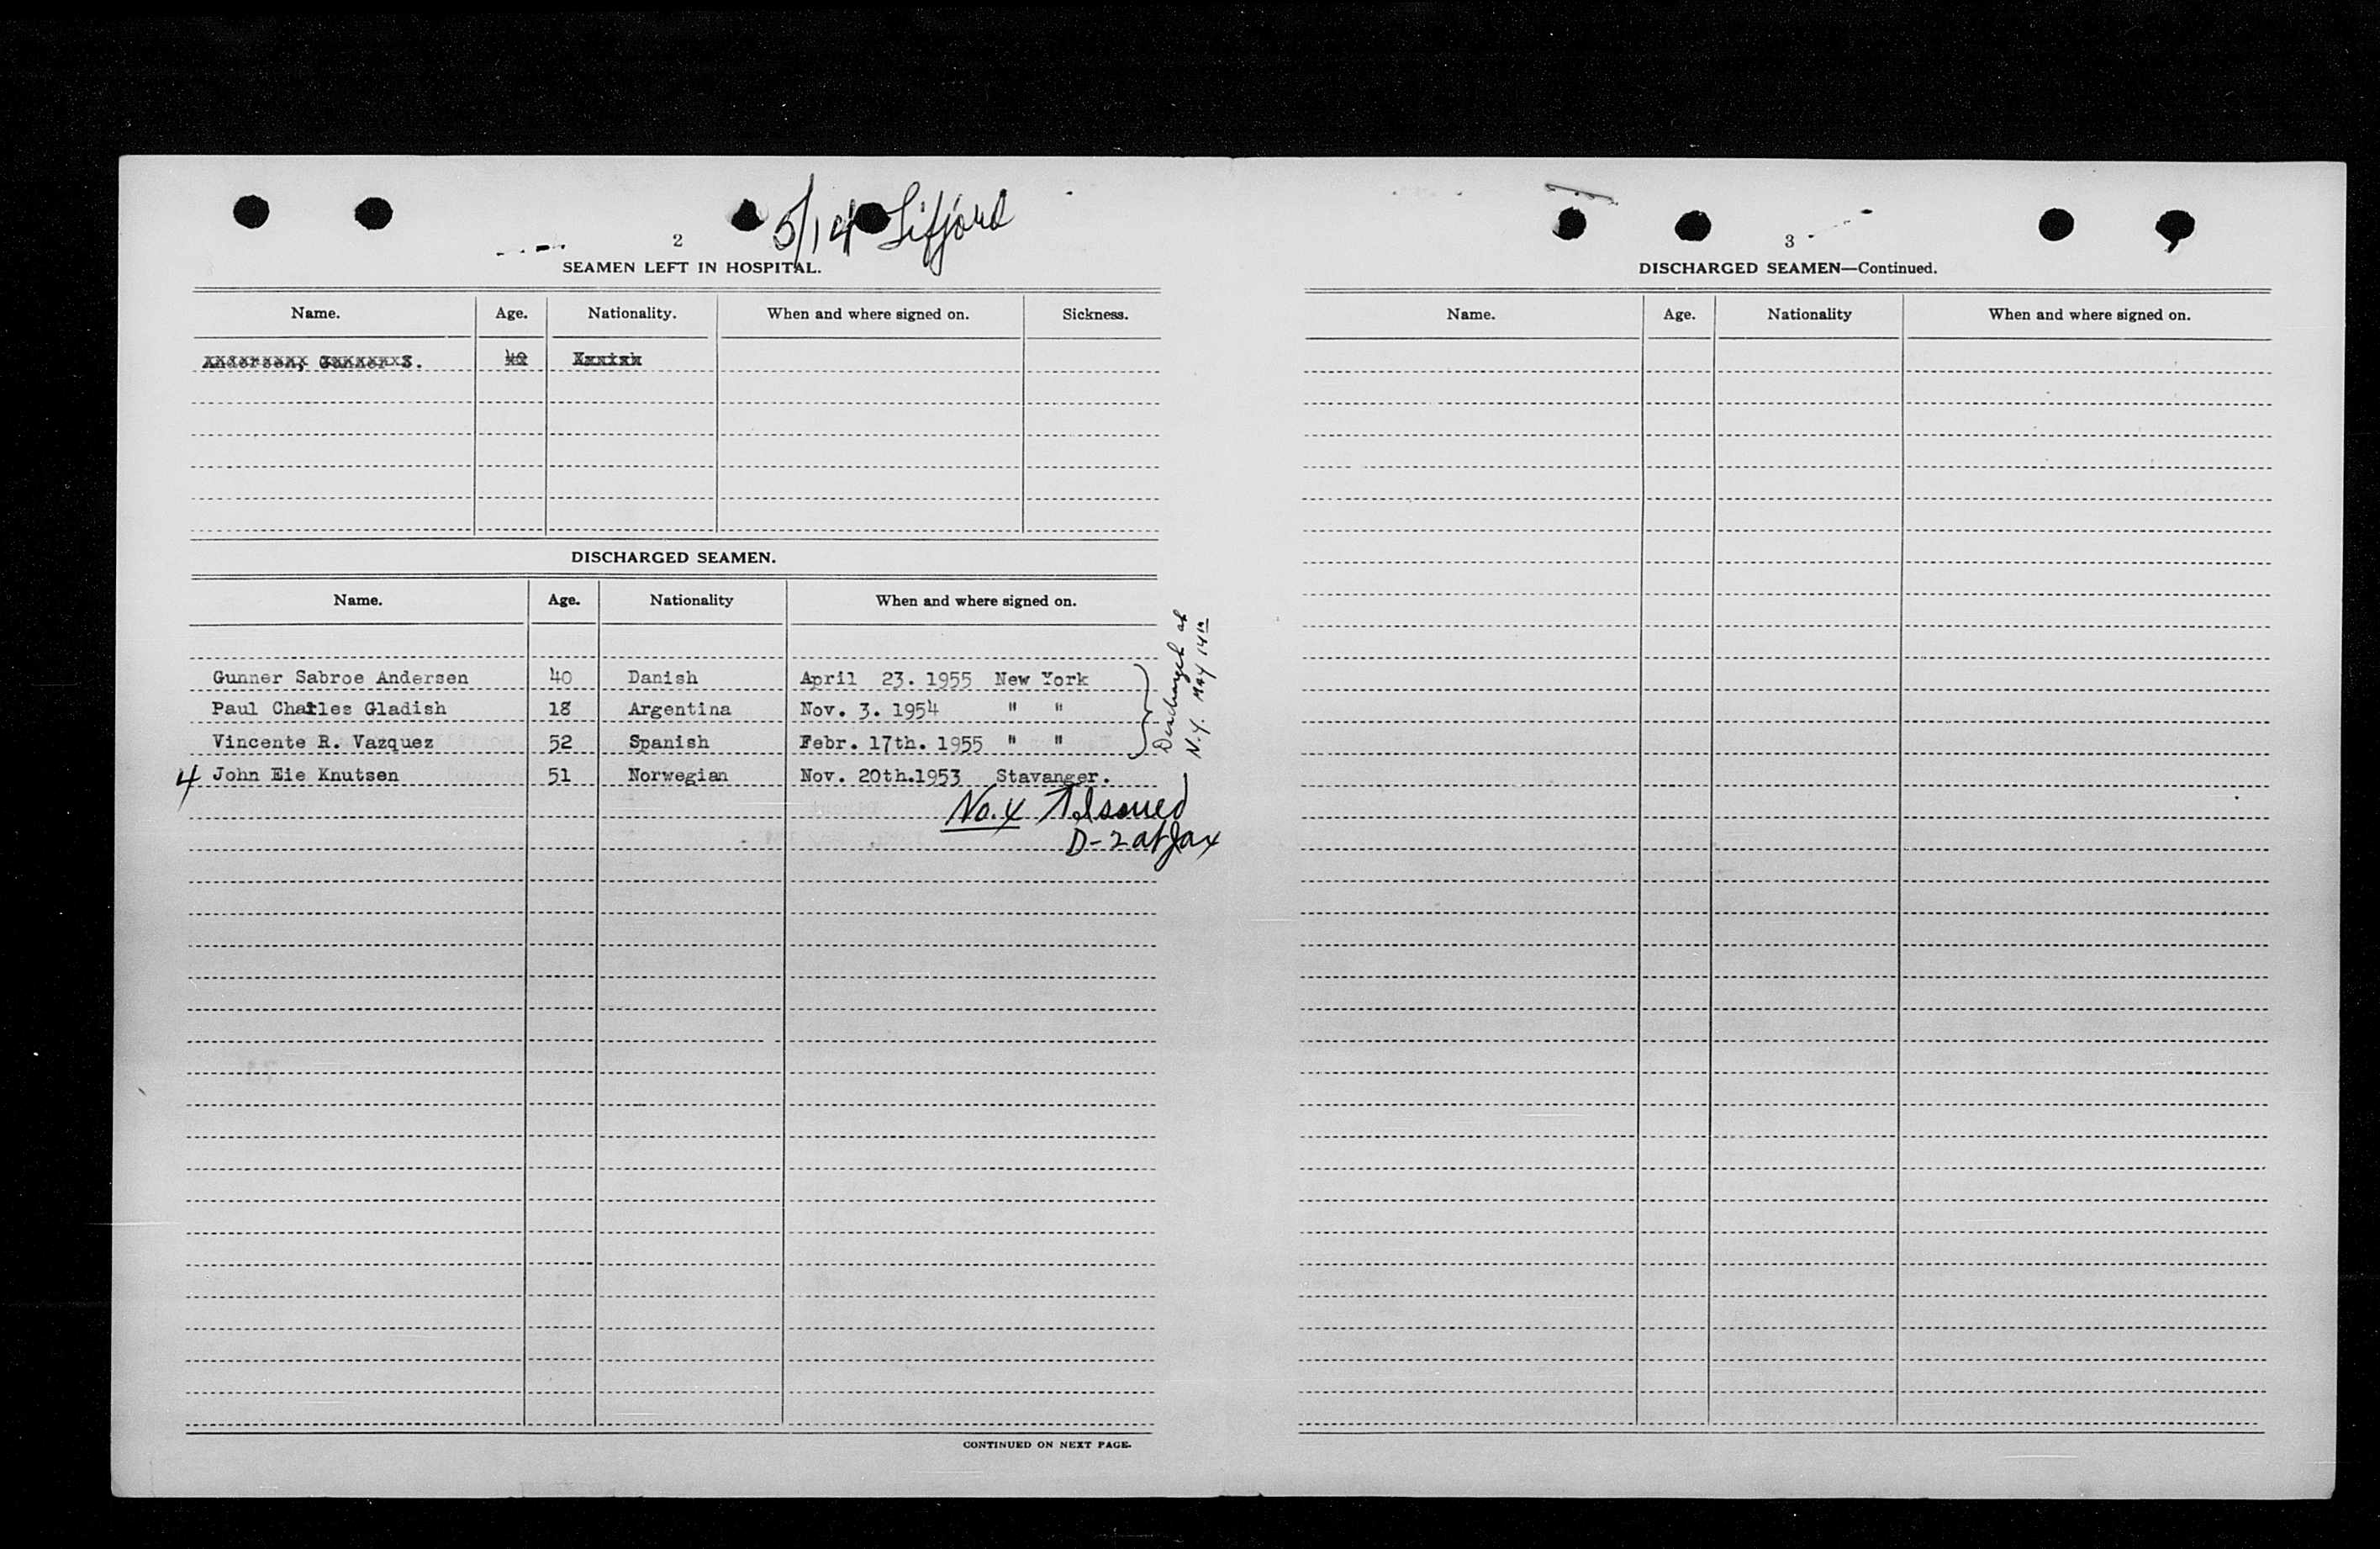 5/14 Lifjord
2
SEAMEN LEFT IN HOSPITAL.
Name. Age. Nationality. When and where signed on. Sickness.
Andersen, Gunner S. 40 Danish
DISCHARGED SEAMEN.
Name. Age. Nationality When and where signed on.
Gunner Sabroe Andersen 40 Danish April 23. 1955 New York
Paul Charles Gladish 18 Argentina Nov. 3. 1954 " "
Vincente R. Vazquez 52 Spanish Febr. 17th. 1955 " "
Discharged at
N.Y. MAY 14th
4 John Eie Knutsen 51 Norwegian Nov. 20th.1953 Stavanger.
No. 4
D-2 at Jax
CONTINUED ON NEXT PAGE.
3
DISCHARGED SEAMEN—Continued.
Name. Age. Nationality When and where signed on.